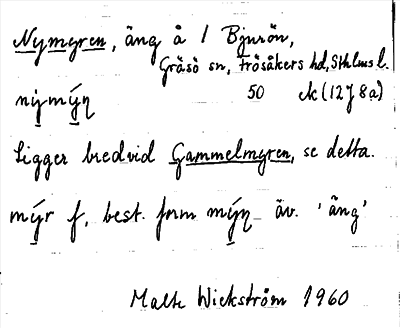 Nymyren, äng å / Bjurön,
Gräsö sn, Frösåkers hd, Sthlms l.
nýmýn 50 ek (12J 8a)
Ligger bredvid Gammelmyren, se detta.
mýr f, best. form mýn äv. 'äng'
Malte Wickström 1960